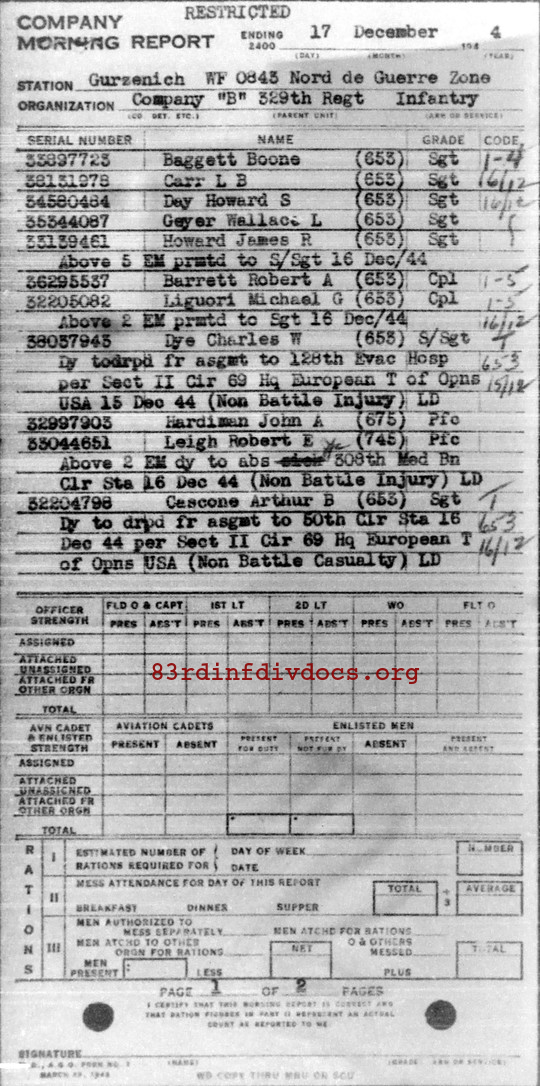 RESTRICTED
COMPANY
MORNING REPORT ENDING 2400 17 December 194 4
(DAY) (MONTH) (YEAR)
STATION Gurzenich WF 0843 Nord de Guerre Zone
ORGANIZATION Company "B" 329th Regt Infantry
(CO. DET. ETC.) (PARENT UNIT) (ARM OR SERVICE)
SERIAL NUMBER NAME GRADE CODE
33897723 Baggett Boone (653) Sgt 1-4
38131978 Carr L B (653) Sgt 16/12
34580484 Day Howard S (653) Sgt 16/12
35344087 Geyer Wallace L (653) Sgt
33139461 Howard James R (653) Sgt
Above 5 EM prmtd to S/Sgt 16 Dec/44
36295537 Barrett Robert A (653) Cpl 1-5
32205082 Liguori Michael G (653) Cpl 1-5
Above 2 EM prmtd to Sgt 16 Dec/44 16/12
38037943 Dye Charles W (653) S/Sgt T
Dy todrpd fr asgmt to 128th Evac Hosp 653
per Sect II Cir 69 Hq European T of Opns 15/12
USA 15 Dec 44 (Non Battle Injury) LD
32997903 Hardiman John A (675) Pfc
33044651 Leigh Robert E (745) Pfc
Above 2 EM dy to abs sick 308th Med Bn
Clr Sta 16 Dec 44 (Non Battle Injury) LD
32204798 Cascone Arthur B (653) Sgt T
Dy to drpd fr asgmt to 50th Clr Sta 16 653
Dec 44 per Sect II Cir 69 Hq European T 16/12
of Opns USA (Non Battle Casualty) LD
OFFICER STRENGTH FLD O & CAPT 1ST LT 2D LT WO FLT O
PRES ABS'T PRES ABS'T PRES ABS'T PRES ABS'T PRES ABS'T
ASSIGNED
ATTACHED UNASSIGNED
83rdinfdivdocs.org
ATTACHED FR OTHER ORGN
TOTAL
AVN CADET & ENLISTED STRENGTH AVIATION CADETS ENLISTED MEN
PRESENT ABSENT PRESENT FOR DUTY PRESENT NOT FOR DY ABSENT PRESENT AND ABSENT
ASSIGNED
ATTACHED UNASSIGNED
ATTACHED FR OTHER ORGN
TOTAL
RATIONS
I ESTIMATED NUMBER OF DAY OF WEEK NUMBER
RATIONS REQUIRED FOR DATE
II MESS ATTENDANCE FOR DAY OF THIS REPORT TOTAL ÷ 3 AVERAGE
BREAKFAST DINNER SUPPER
III MEN AUTHORIZED TO MESS SEPARATELY MEN ATCHD FOR RATIONS
MEN ATCHD TO OTHER ORGN FOR RATIONS NET O & OTHERS MESSED TOTAL
MEN PRESENT LESS PLUS
PAGE 1 OF 2 PAGES
I CERTIFY THAT THIS MORNING REPORT IS CORRECT AND
THAT RATION FIGURES IN PART II REPRESENT AN ACTUAL
COUNT AS REPORTED TO ME
SIGNATURE
(NAME) (GRADE ARM OR SERVICE)
A.G.O. FORM NO. 1
MARCH
WD COPY THRU MRU OR SCU